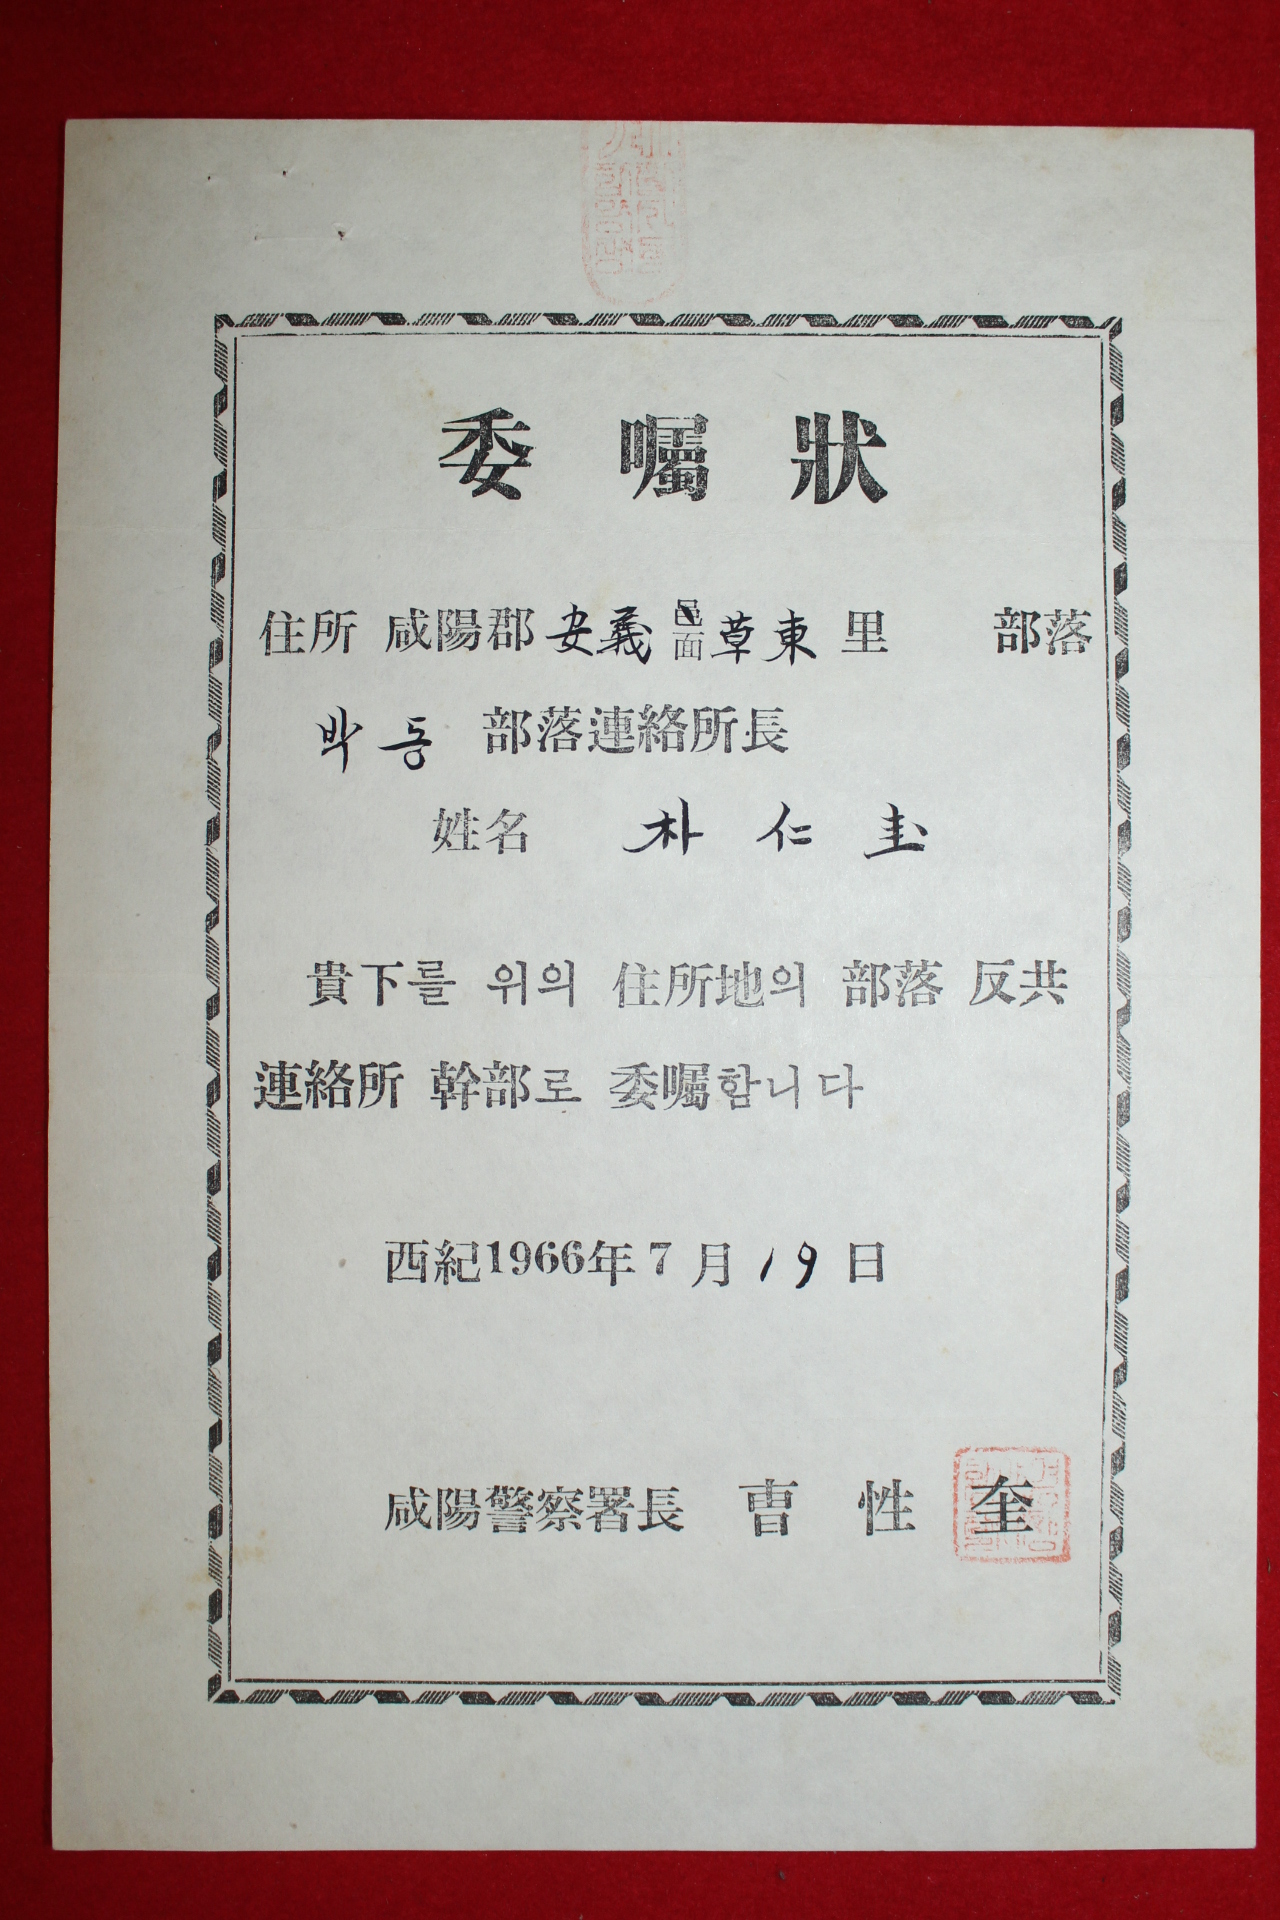 委囑狀
住所 咸陽郡 安義 邑面 草東 里 部落
박동 部落連絡所長
姓名 朴仁圭
貴下를 위의 住所地의 部落 反共
連絡所 幹部로 委囑함니다
西紀1966年 7 月 19 日
咸陽警察署長 曺性奎